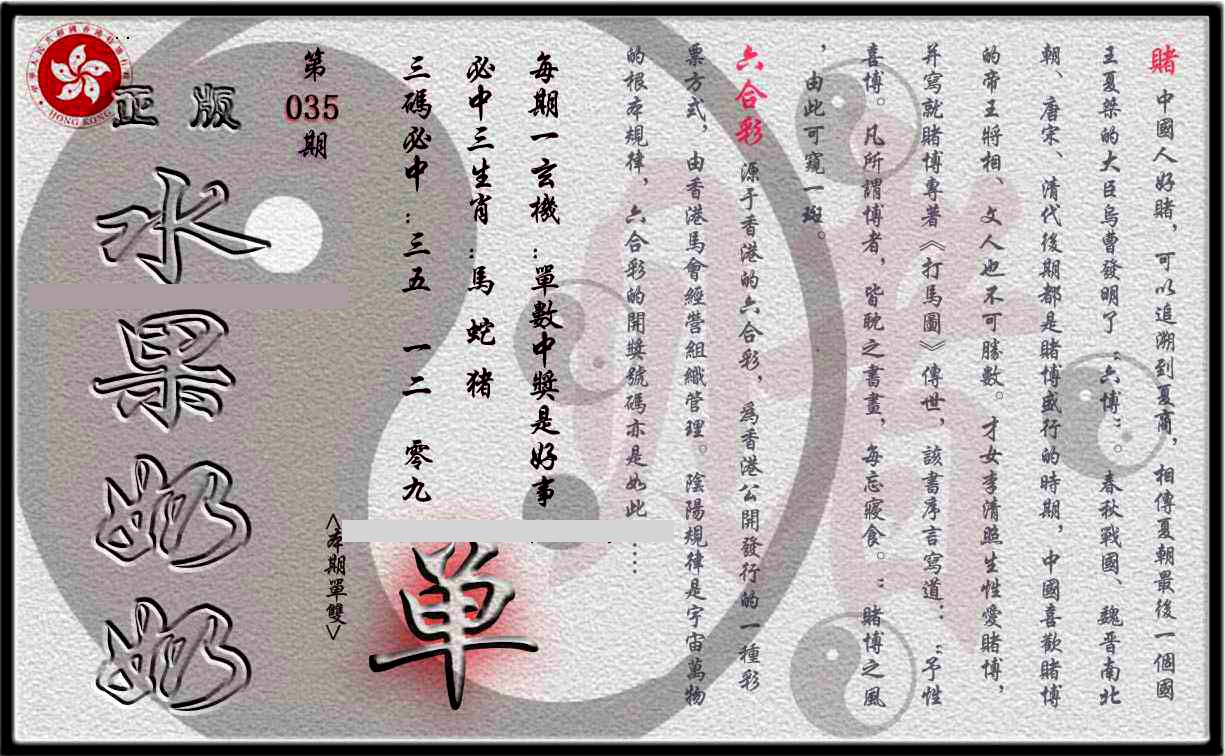 賭 中國人好賭，可以追溯到夏商，相傳夏朝最後一個國
王夏桀的大臣烏曹發明了“六博”。春秋戰國、魏晉南北
朝、唐宋、清代後期都是賭博盛行的時期，中國喜歡賭博
的帝王將相、文人也不可勝數。才女李清照生性愛賭博，
并寫就賭博專著《打馬圖》傳世，該書序言寫道：“予性
喜博。凡所謂博者，皆耽之書畫，每忘寢食。”賭博之風
，由此可窺一斑。
六合彩 源于香港的六合彩，為香港公開發行的一種彩
票方式，由香港馬會經營組織管理。陰陽規律是宇宙萬物
的根本規律，六合彩的開獎號碼亦是如此……
每期一玄機：單數中獎是好事
必中三生肖：馬 蛇 猪
三碼必中：三五 一二 零九
第
035
期
<本期單雙>
单
正版
水果奶奶
HONG KONG